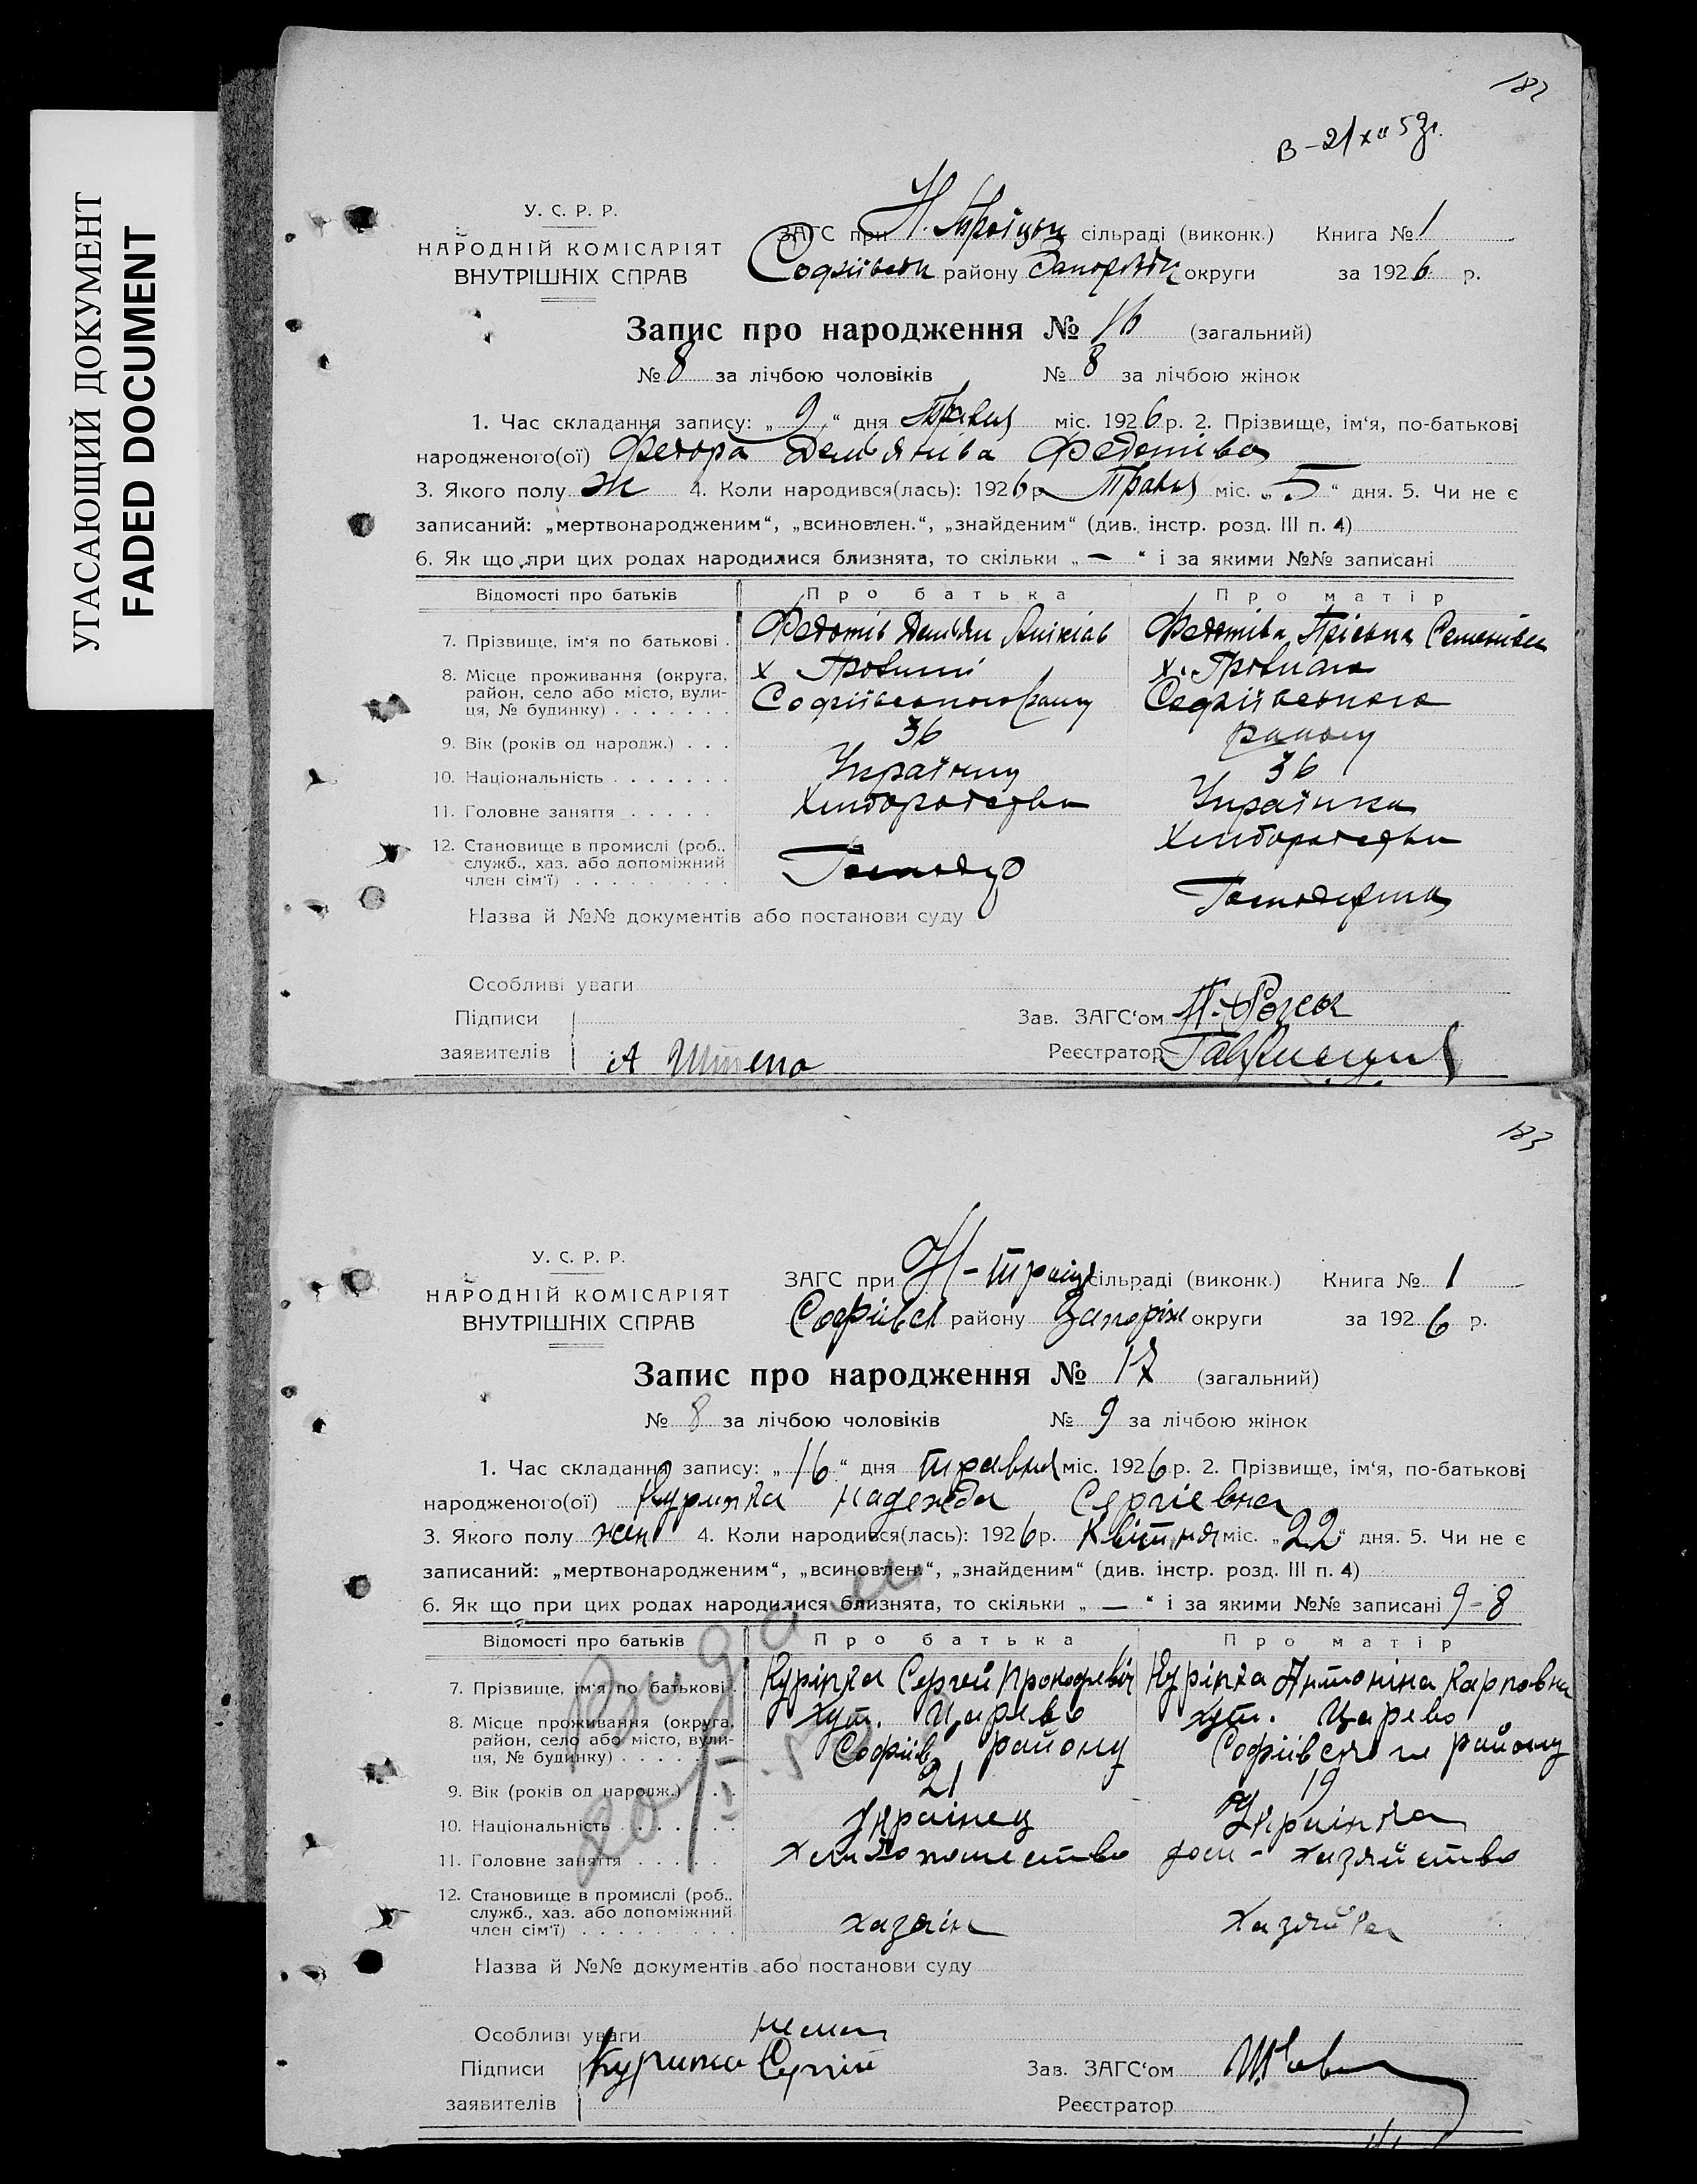 УГАСАЮЩИЙ ДОКУМЕНТ
FADED DOCUMENT
182
У. С. Р. Р.
НАРОДНІЙ КОМІСАРІЯТ
ВНУТРІШНІХ СПРАВ
ЗАГС при Н. Троїцьк сільраді (виконк.) Книга № 1
Софіївськ району Запоріжк округи за 1926 р.
Запис про народження № 16 (загальний)
№ 8 за лічбою чоловіків № 8 за лічбою жінок
1. Час складання запису: „ 9 “ дня Травня міс. 1926 р. 2. Прізвище, ім‘я, по-батькові
народженого(ої) Федора Дем'янівна Федотіва
3. Якого полу Ж 4. Коли народився(лась): 1926 р. Травня міс. „ 5 “ дня. 5. Чи не є
записаний: „мертвонародженим“, „всиновлен.“, „знайденим“ (див. інстр. розд. III п. 4)
6. Як що при цих родах народилися близнята, то скільки „ — “ і за якими №№ записані
Відомості про батьків Про батька Про матір
7. Прізвище, ім‘я по батькові . Федотів Дем'ян Федотіва Семенівна
8. Місце проживання (округа, х х.
район, село або місто, вули- Софіївського рану Софіївського
ця, № будинку) . . . . . . . району
9. Вік (років од народж.) . . . 36 36
10. Національність . . . . . . . Українец Українка
11. Головне заняття . . . . . Хліборобство Хліборобство
12. Становище в промислі (роб.,
служб., хаз. або допоміжний Господар Господарка
член сім‘ї) . . . . . . . . .
Назва й №№ документів або постанови суду
Особливі уваги
Підписи Зав. ЗАГС‘ом
заявителів А Штепа Реєстратор
183
У. С. Р. Р.
НАРОДНІЙ КОМІСАРІЯТ
ВНУТРІШНІХ СПРАВ
ЗАГС при Н-Троіц сільраді (виконк.) Книга № 1
Софіївск району Запоріж округи за 1926 р.
Запис про народження № 17 (загальний)
№ 8 за лічбою чоловіків № 9 за лічбою жінок
1. Час складання запису: „ 16 “ дня травня міс. 1926 р. 2. Прізвище, ім‘я, по-батькові
народженого(ої) Курипка Надежда Сергіевна
3. Якого полу жен 4. Коли народився(лась): 1926 р. Квітня міс. „ 22 “ дня. 5. Чи не є
записаний: „мертвонародженим“, „всиновлен.“, „знайденим“ (див. інстр. розд. III п. 4)
6. Як що при цих родах народилися близнята, то скільки „ — “ і за якими №№ записані 9-8
Відомості про батьків Про батька Про матір
7. Прізвище, ім‘я по батькові . Куріпка Сергей Прокофевіч Куріпка Антоніна Карповна
8. Місце проживання (округа, хут. Царево хут. Царево
район, село або місто, вули- Софіів району Софіівского району
ця, № будинку) . . . . . . .
9. Вік (років од народж.) . . . 21 19
10. Національність . . . . . . . Украінец Украінка
11. Головне заняття . . . . . Хлибопашество дом - хазяйство
12. Становище в промислі (роб.,
служб., хаз. або допоміжний хазяін Хазяйка
член сім‘ї) . . . . . . . . .
Назва й №№ документів або постанови суду
Особливі уваги немає
Підписи Курипка Сергій Зав. ЗАГС‘ом
заявителів Реєстратор